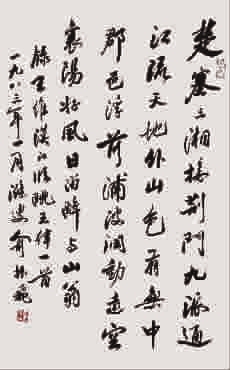 楚塞三湘接荆門九派通
江流天地外山色有無中
郡邑浮前浦波瀾動遠空
襄陽好風日留醉与山翁
錄王維漢江臨眺五律一首
一九八三年一月俞振飛